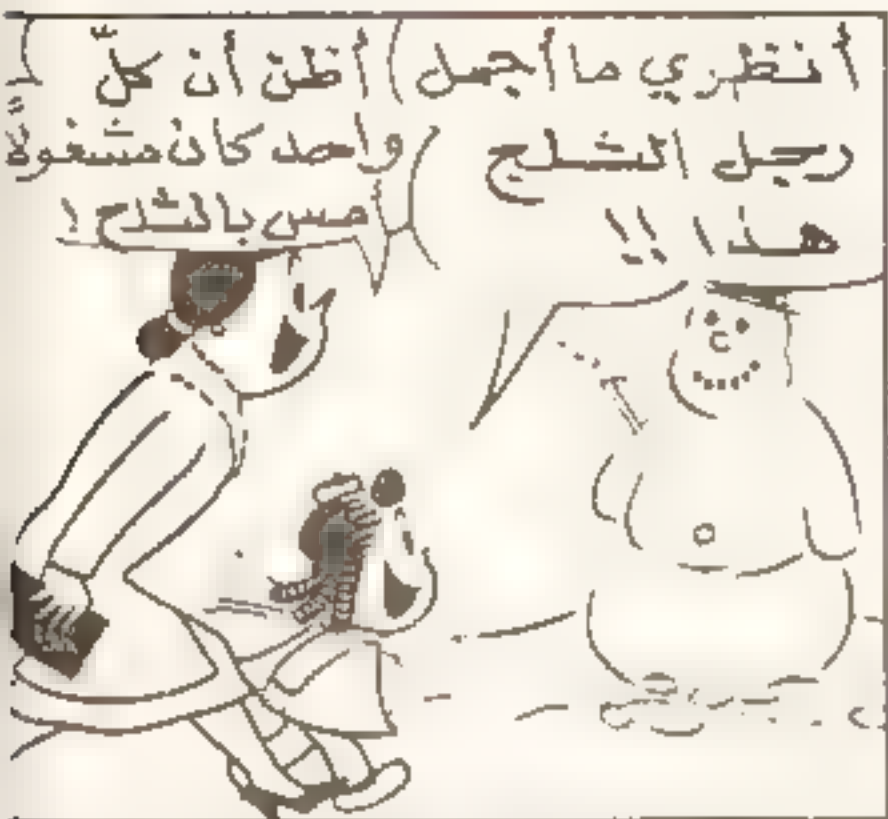 أنظري ما أجمل
رجل الثلج
هذا !!
أظن أن كلّ
واحد كان مشغولاً
مس بالثلج !